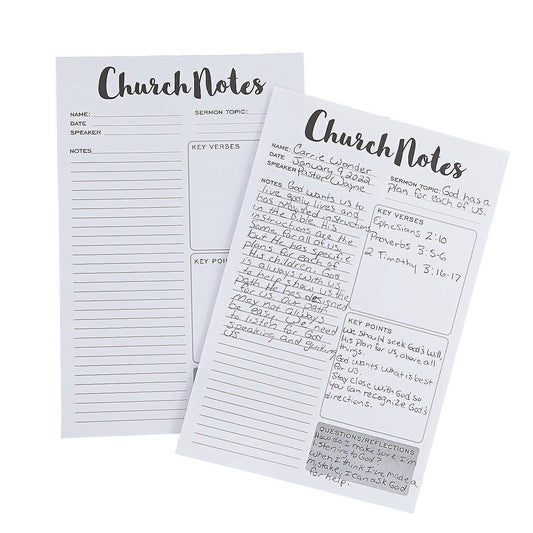 Church Notes
NAME:
DATE
SPEAKER
SERMON TOPIC:
NOTES
KEY VERSES
KEY POINTS
Church Notes
NAME: Carrie Wonder
DATE January 9, 2022
SPEAKER Pastor Wayne
SERMON TOPIC: God has a
Plan for each of us.
NOTES God wants us to
live godly lives and
has provided instructions
in the Bible. His
instructions are the
same for all of us,
but He has specific
plans for each of
His children. God
is always with us
to help show us the
path He has designed
for us. Our path
may not always
be easy. We need
to listen for God
speaking and guiding
us.
KEY VERSES
Ephesians 2:10
Proverbs 3:5-6
2 Timothy 3:16-17
KEY POINTS
We should seek God's will,
His plan for us, above all
things.
God wants what is best
for us.
Stay close with God so
you can recognize God's
directions.
QUESTIONS/REFLECTIONS
How do I make sure I'm
listening to God?
When I think I've made a
mistake, I can ask God
for help.